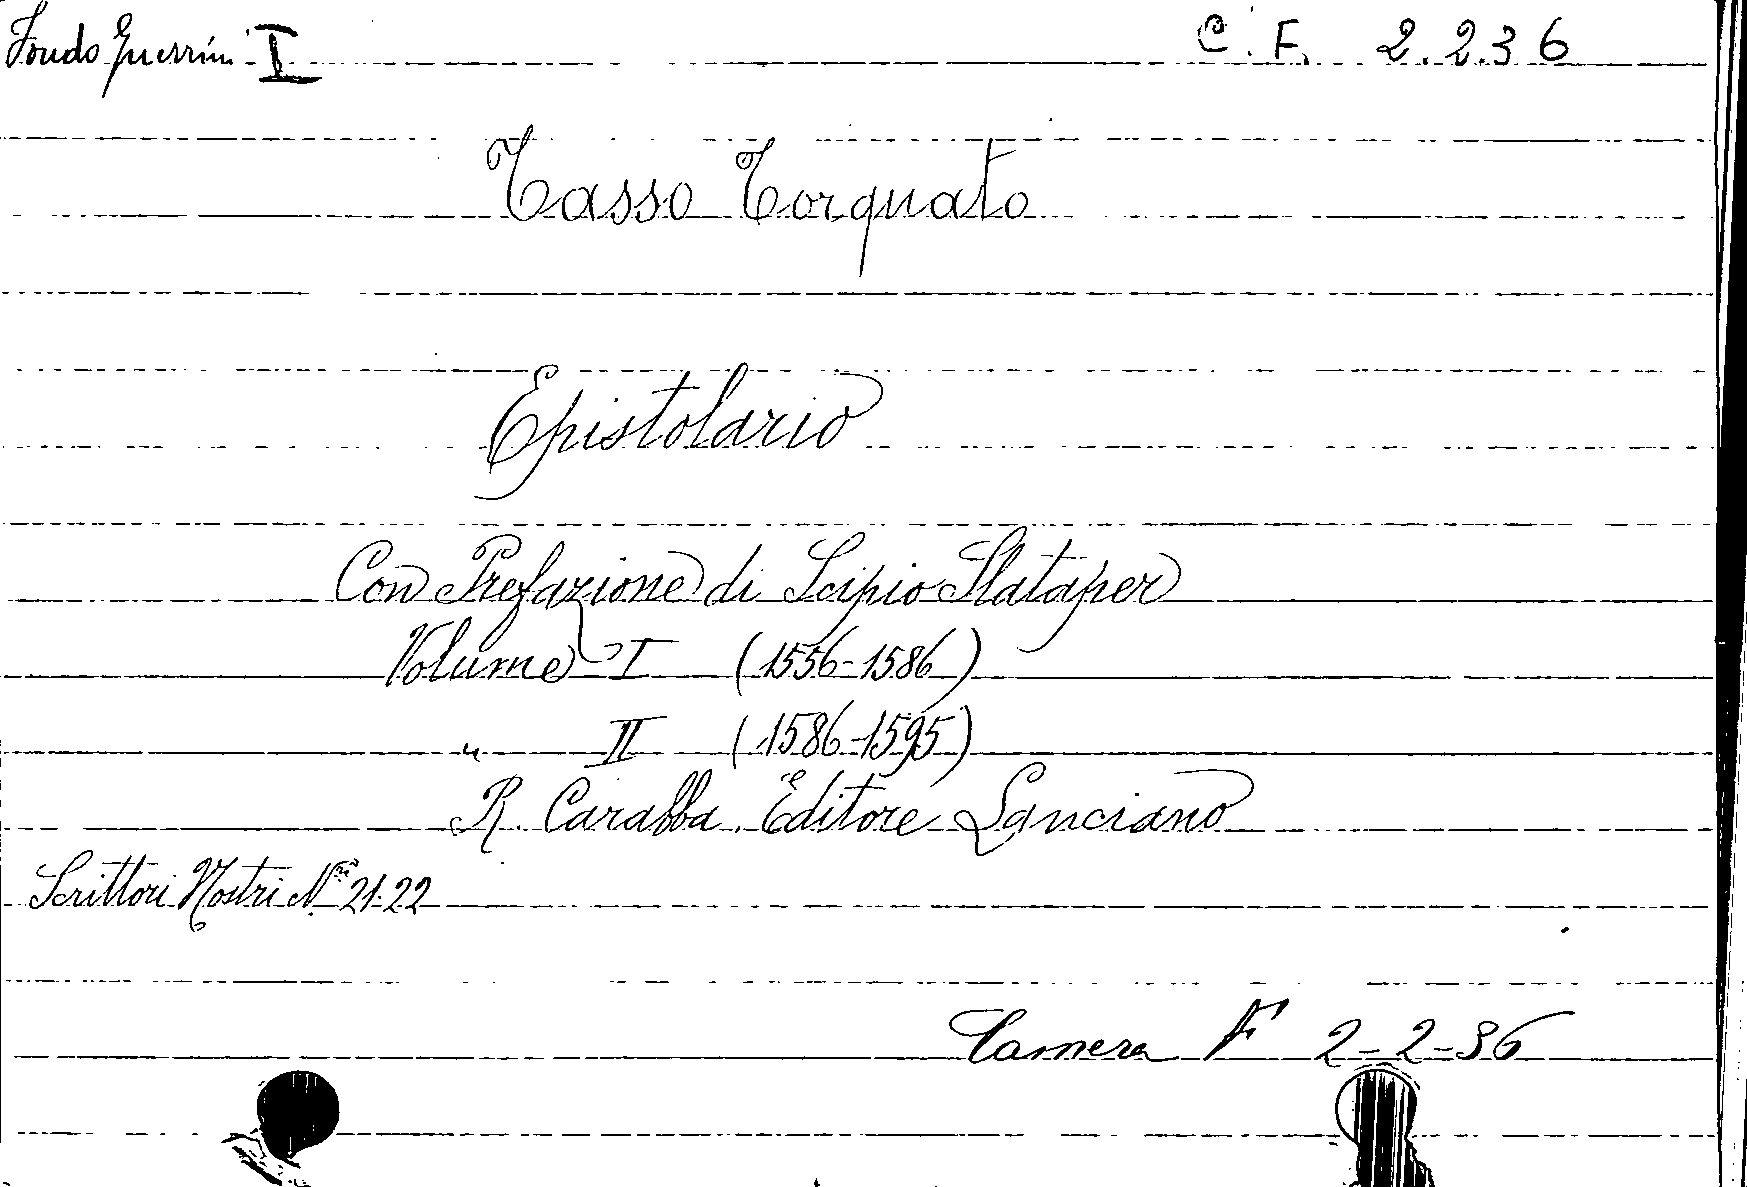 Fondo Guerrini I C. F. 2.2.36
Tasso Torquato
Epistolario
Con Prefazione di Scipio Slataper
Volume I (1556-1586)
" II (1586-1595)
R. Carabba. Editore Lanciano
Scrittori Nostri N.ri 21-22
Camera F 2-2-36